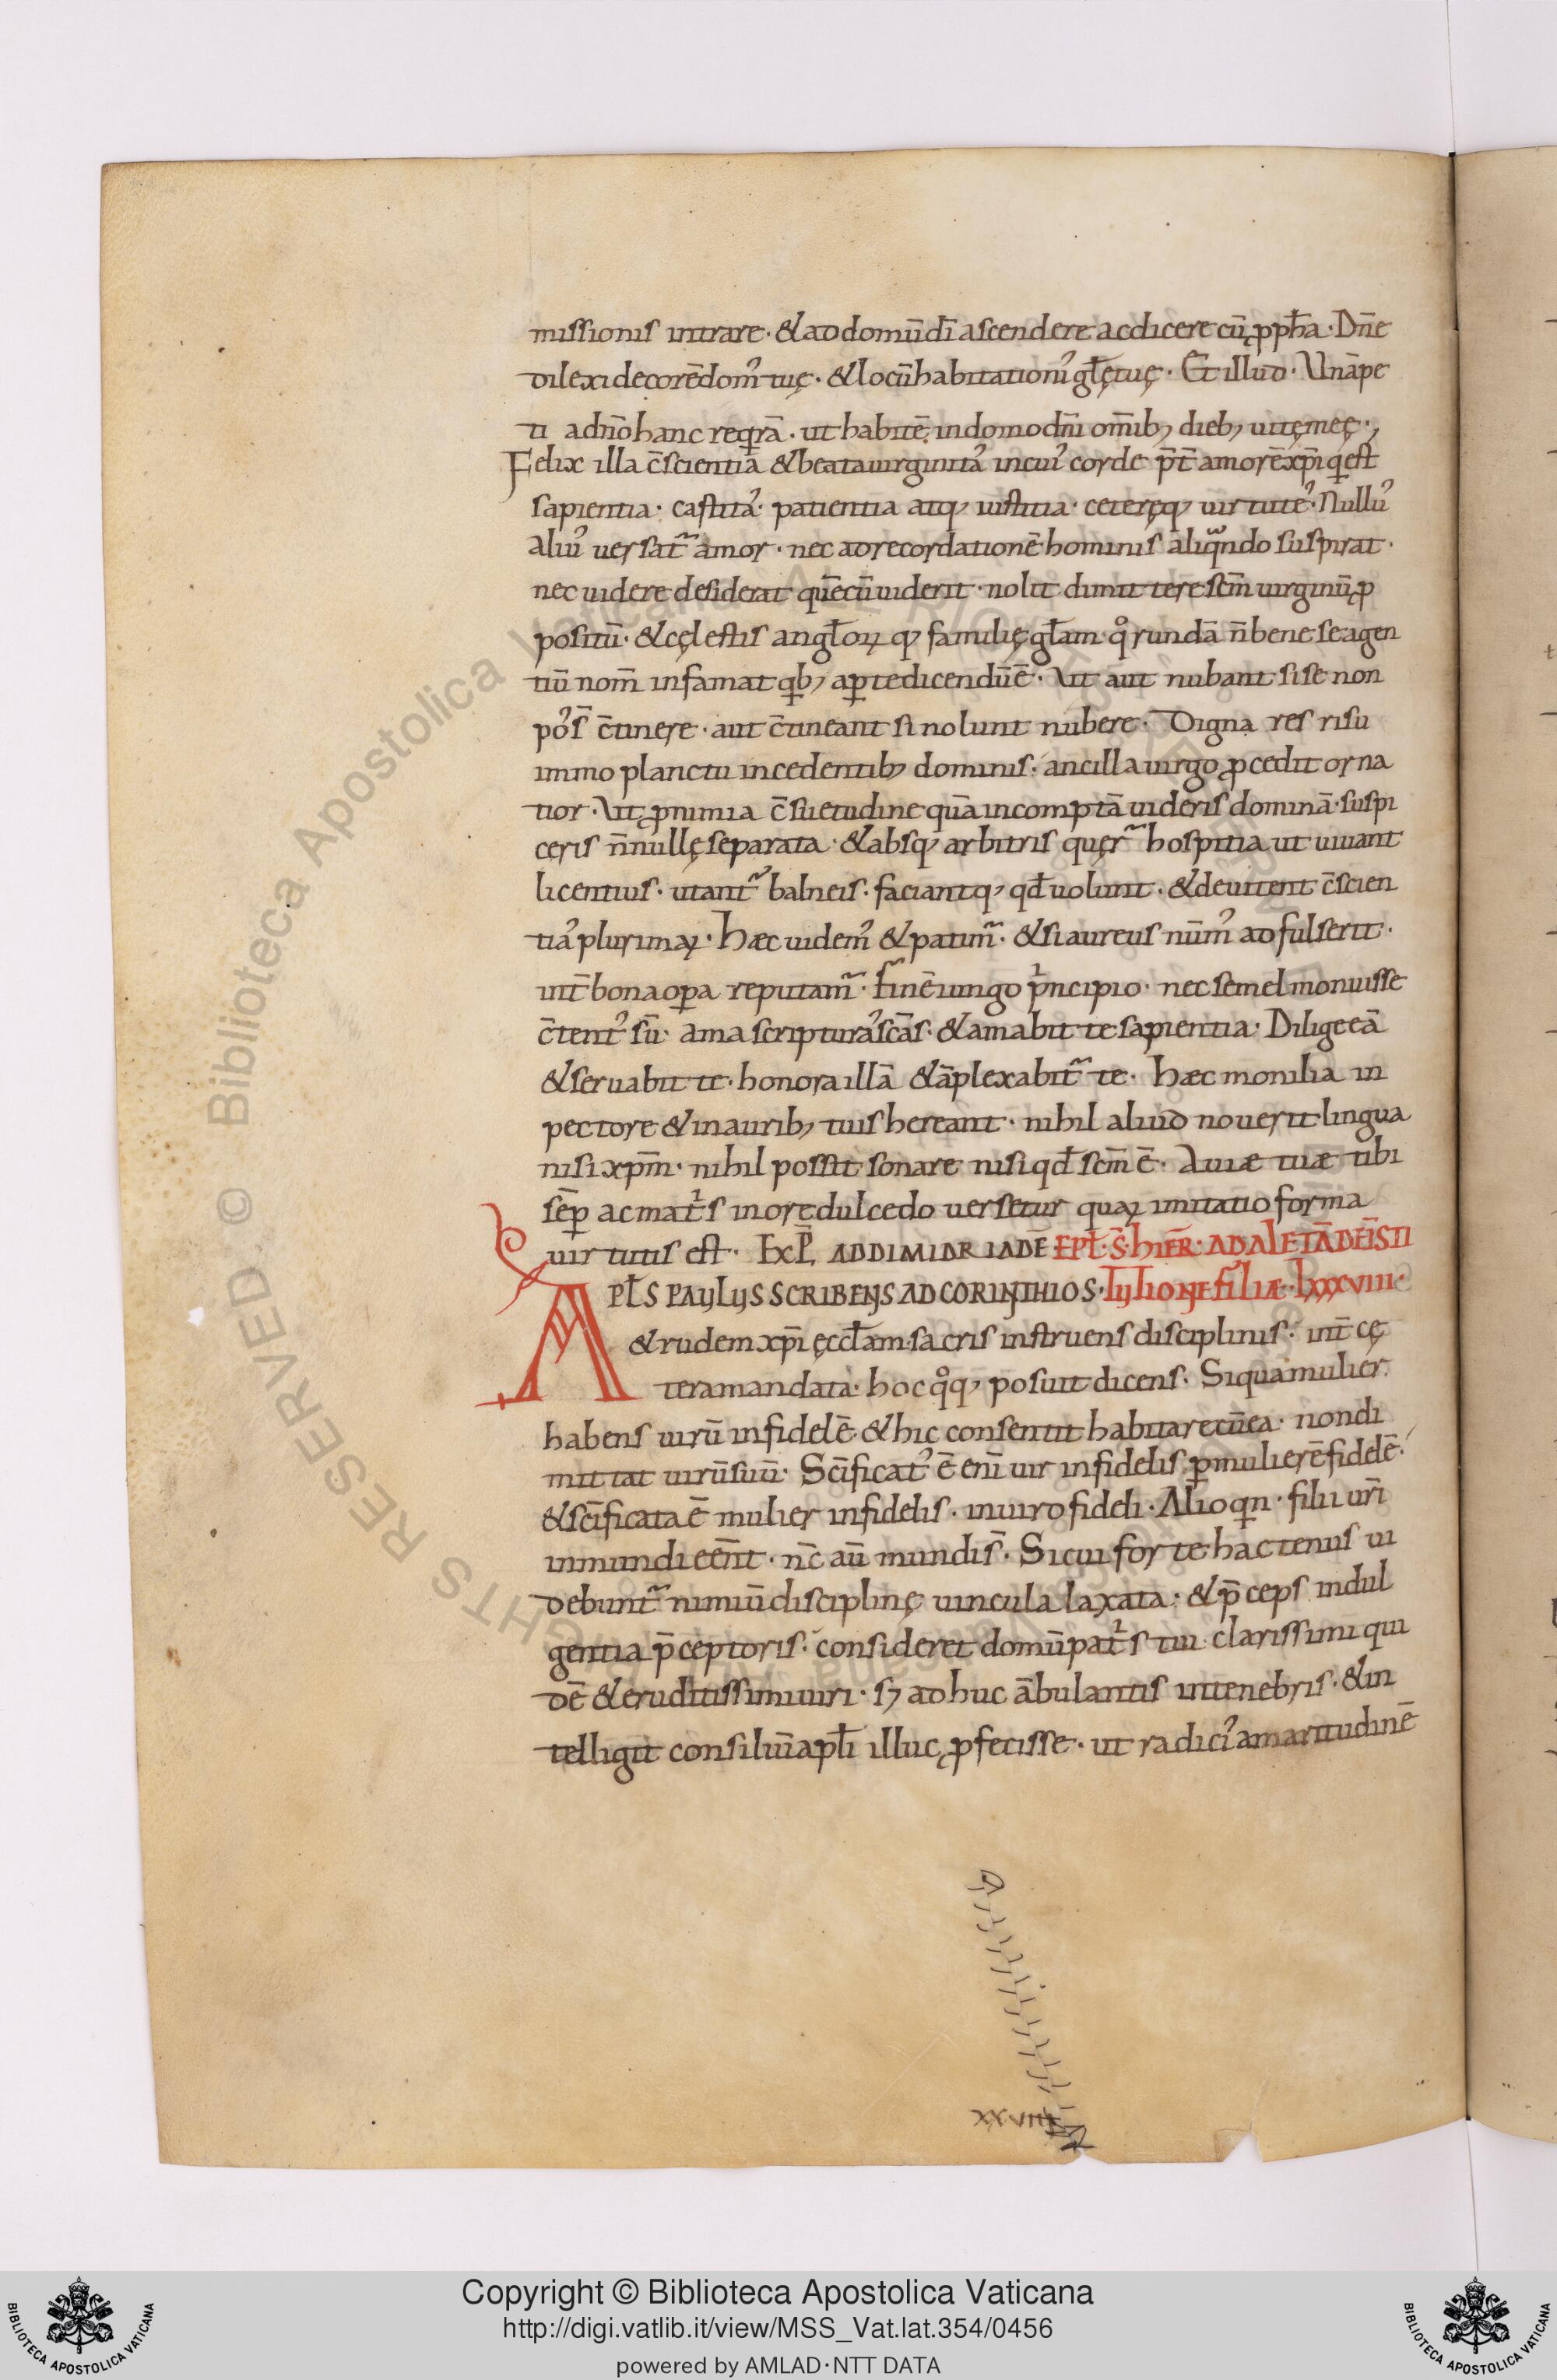 missionis intrare · & ad domū dī ascendere ac dicere cū ꝓpħa · Dn̄e
dilexi decorē dom᾽ tuę · & locū habitation᾽ gl̄ę tuę · Et illud · Unā pe
ti a dn̄o hanc reqͥrā · ut habitē in domo dn̄i om̄ib; dieb; uitę meę ·,
Felix illa c̄scientia & beata uirginita᾽ in cui᾽ corde p̄t̄ amorē xp̄i qͥ est
sapientia · castita᾽ · patientia atq; iustitia · ceteręq; uirtute᾽ · Nullu᾽
aliu᾽ uersat᷑ amor · nec ad recordationē hominis aliqͣndo suspirat ·
nec uidere desiderat quē cū uiderit · nolit dimittere · sc̄m uirginū ꝓ
positū · & cęlestis angl̄oꝝ q; familię gl̄am · qͦrundā n̄ bene se agen
tiū nom̄ infamat qͥb; aꝑte dicendū ē · Ut aut nubant si se non
po᾽s̄ c̄tinere · aut c̄tineant si nolunt nubere · Digna res risu
immo planctu incedentib; dominis · ancilla uirgo ꝓcedit orna
tior · Ut ꝓ nimia c̄suetudine quā incomptā uideris dominā · suspi
ceris n̄nullę separata · & absq; arbitris quęr᷑ hospitia ut uiuant
licentius · utant᷑ balneis · faciantq; qđ uolunt · & deuitent c̄scien
tia᾽ plurimaꝝ · Hæc uidem᾽ & patim᷑ · & si aureus nūm᾽ adfulserit ·
int̄ bona oꝑa reputam᷑ · finē iungo pͥncipio · nec semel monuisse
c̄tent᾽ sū · ama scriptura᾽ scās · & amabit te sapientia · Dilige eā
& seruabit te · honora illā & āplexabit᷑ te · Hæc monilia in
pectore & in aurib; tuis hereant · nihil aliud nouerit lingua
nisi xp̄m · nihil possit sonare nisi qđ sc̄m ē · Auiæ tuæ tibi
sēꝑ ac matͥs in ore dulcedo uersetur quaꝝ imitatio forma
uirtutis est · EXP̄ AD DIMIDRIADĒ EPL̄ · S̄ · HIER̄ · AD ALETĀ DE ĪSTI
APL̄S PAULUS SCRIBENS AD CORINTHIOS · TUTIONE FILIÆ · LXXXVIII ·
& rudem xp̄i ęccl̄am · sacris instruens disciplinis · int̄ cę
tera mandata · hoc qͦq; posuit dicens · Siqua mulier
habens uirū infidelē · & hic consentit habitare cū ea · non di
mittat uirū suū · Sc̄ificat᾽ ē enī uir infidelis ꝑ mulierē fidelē ·
& sc̄ificata ē mulier infidelis · in uiro fideli · Alioqͥn · filii ur̄i
inmundi eēnt · nc̄ aū mundi s̄ · Sicui forte hactenus ui
debunt᷑ nimiū disciplinę uincula laxata · & p̄ceps indul
gentia p̄ceptoris · consideret domū patͥs tui clarissimi qui
dē & eruditissimi uiri · s; adhuc ābulantis in tenebris · & in
telligit consiliū apl̄i illuc ꝓfecisse · ut radici᾽ amaritudinē
XXVIIII
Copyright © Biblioteca Apostolica Vaticana
http://digi.vatlib.it/view/MSS_Vat.lat.354/0456
powered by AMLAD·NTT DATA
BIBLIOTECA APOSTOLICA VATICANA
BIBLIOTECA APOSTOLICA VATICANA